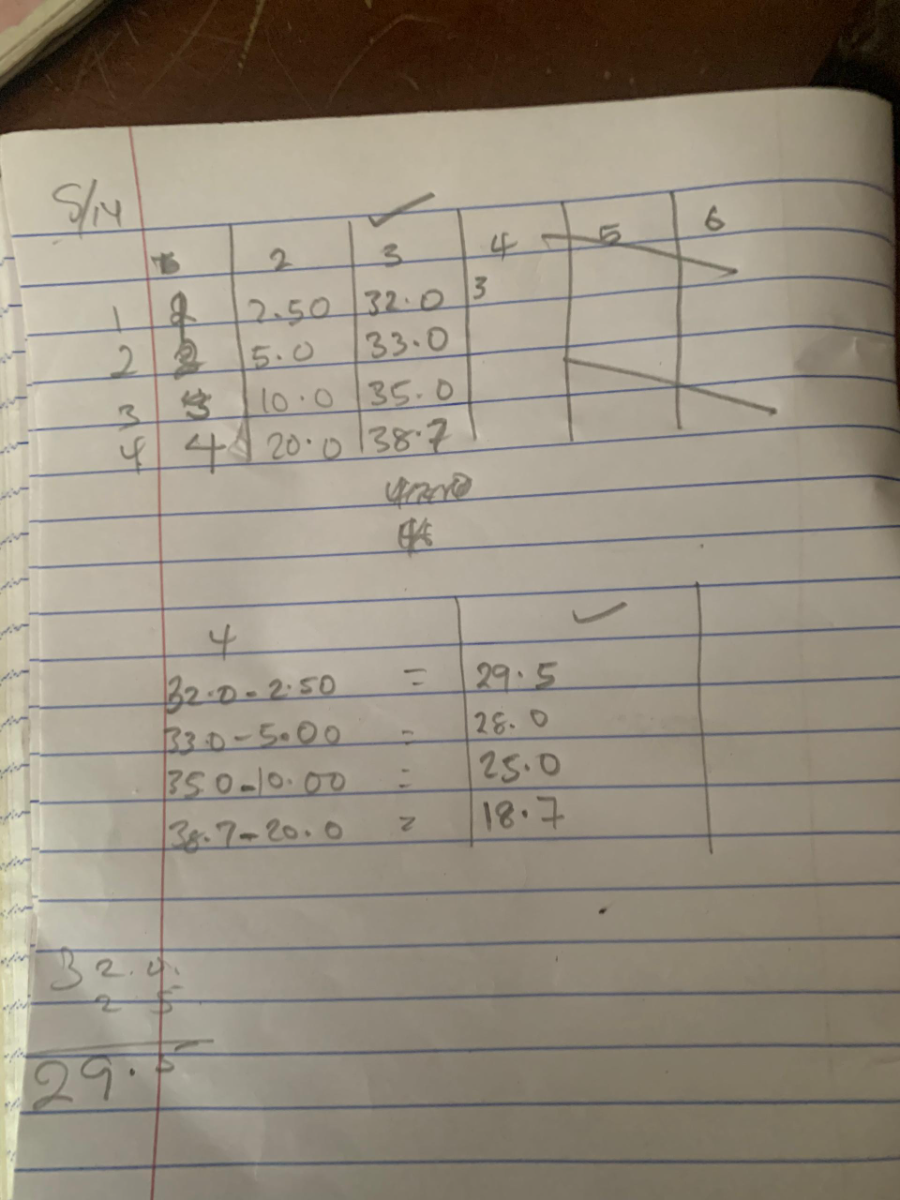 S/14
2 3 4 5 6
1 2.50 32.0 3
2 2 5.0 33.0
3 3 10.0 35.0
4 4 20.0 38.7
4
32.0-2.50 = 29.5
33.0-5.00 = 28.0
35.0-10.00 = 25.0
38.7-20.0 = 18.7
32.0.
2 5
29.5